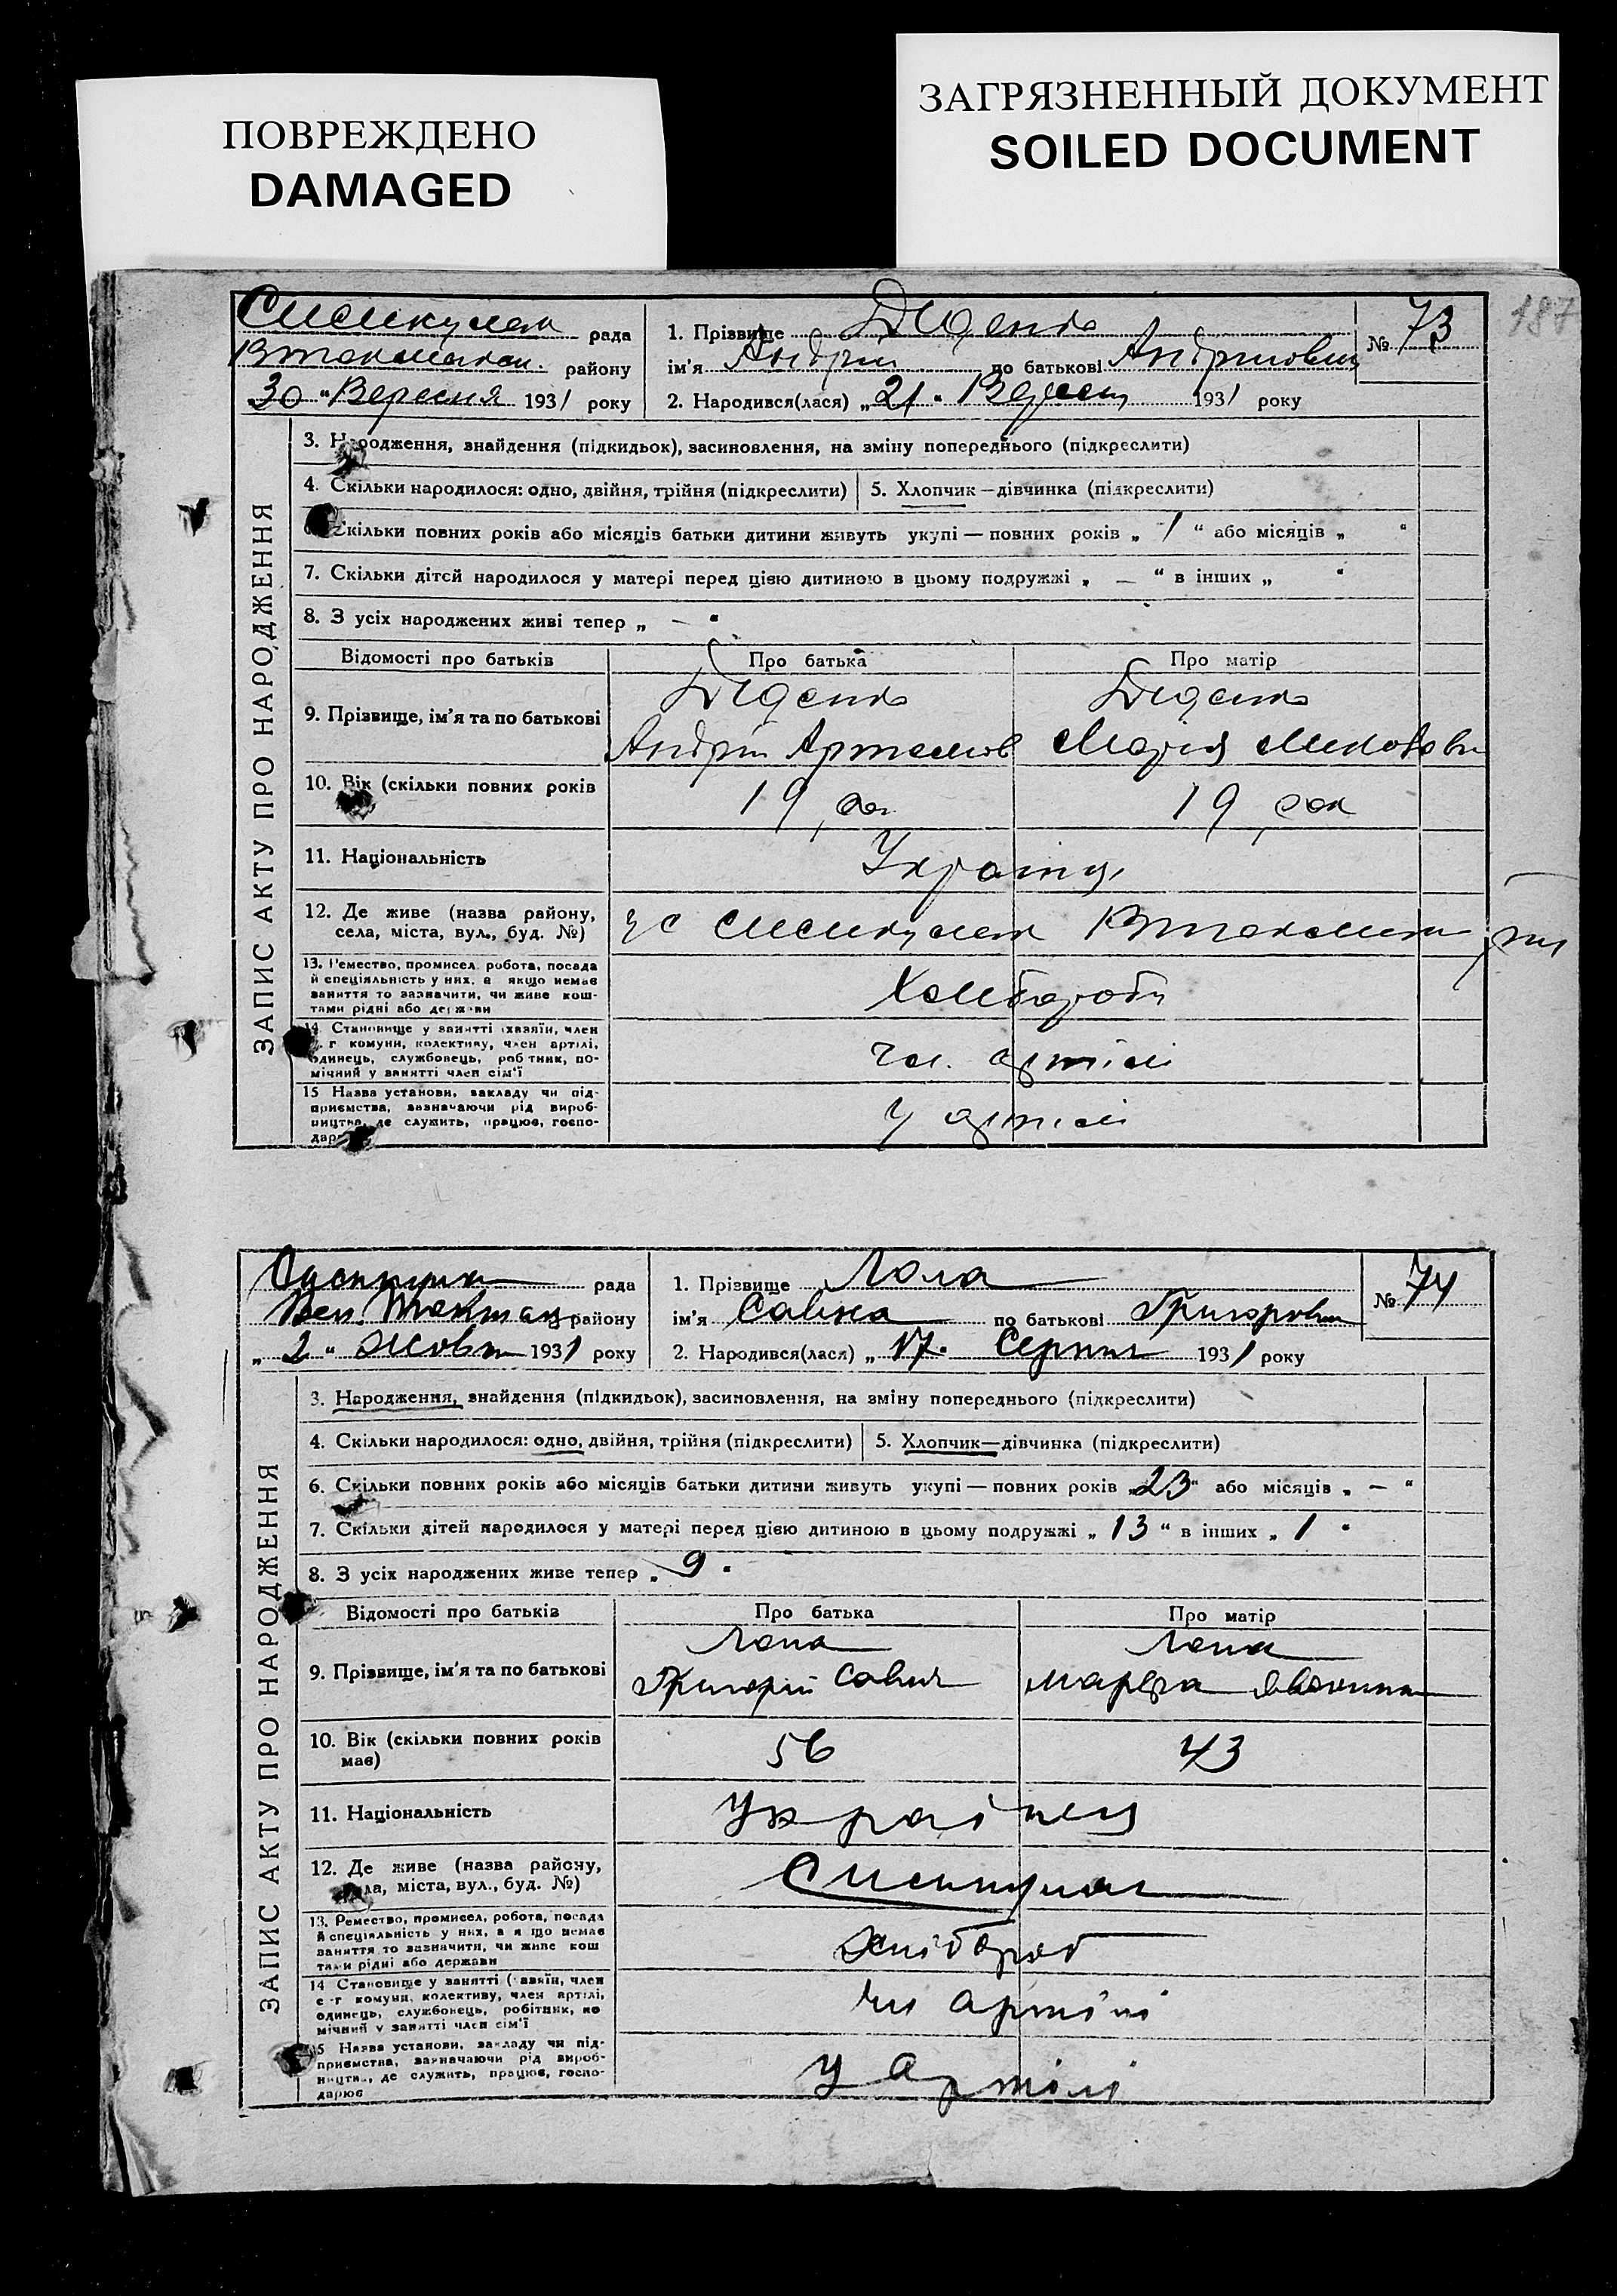 ПОВРЕЖДЕНО
DAMAGED
ЗАГРЯЗНЕННЫЙ ДОКУМЕНТ
SOILED DOCUMENT
187
ЗАПИС АКТУ ПРО НАРОДЖЕННЯ
рада
району
30 " Вересня 1931 року
1. Прізвище
ім'я Андрій по батькові Андрійович
2. Народився(лася) „ 21 " 1931 року
№ 73
3. Народження, знайдення (підкидьок), засиновлення, на зміну попереднього (підкреслити)
4. Скільки народилося: одно, двійня, трійня (підкреслити) 5. Хлопчик—дівчинка (підкреслити)
Скільки повних років або місяців батьки дитини живуть укупі — повних років „ 1 " або місяців „ "
7. Скільки дітей народилося у матері перед цією дитиною в цьому подружжі „ — " в інших „ "
8. З усіх народжених живі тепер „ — "
Відомості про батьків Про батька Про матір
9. Прізвище, ім'я та по батькові
Андрій Артемов Марія
10. Вік (скільки повних років
19 19
11. Національність
12. Де живе (назва району,
села, міста, вул., буд. №)
13. Ремество, промисел, робота, посада
й спеціяльність у них, а якщо немає
заняття то зазначити, чи живе кош-
тами рідні або держави
14. Становище у занятті (хазяїн, член
с.-г комуни, колективу, член артілі,
одинець, службовець, робітник, по-
мічний у занятті член сім'ї
чл. артілі
15 Назва установи, закладу чи під-
приємства, зазначаючи рід вироб-
ництва, де служить, працює, госпо-
дарює
у артілі
ЗАПИС АКТУ ПРО НАРОДЖЕННЯ
рада
Вел. Токмац району
„ 2 " жовтн 1931 року
1. Прізвище
ім'я Савка по батькові Григорович
2. Народився(лася) „ 17 " Серпня 1931 року
№ 74
3. Народження, знайдення (підкидьок), засиновлення, на зміну попереднього (підкреслити)
4. Скільки народилося: одно, двійня, трійня (підкреслити) 5. Хлопчик—дівчинка (підкреслити)
6. Скільки повних років або місяців батьки дитини живуть укупі — повних років „ 23 " або місяців „ — "
7. Скільки дітей народилося у матері перед цією дитиною в цьому подружжі „ 13 " в інших „ 1 "
8. З усіх народжених живе тепер „ 9 "
Відомості про батьків Про батька Про матір
9. Прізвище, ім'я та по батькові
Григорій Савич Марфа
10. Вік (скільки повних років
має)
56 43
11. Національність
Українец
12. Де живе (назва району,
села, міста, вул., буд. №)
13. Ремество, промисел, робота, посада
й спеціяльність у них, а якщо немає
заняття то зазначити, чи живе кош
тами рідні або держави
хлібороб
14 Становище у занятті (хазяїн, член
с-г комуни, колективу, член артілі,
одинець, службовець, робітник, по
мічний у занятті член сім'ї
чл артілі
15 Назва установи, закладу чи під-
приємства, зазначаючи рід вироб-
ництва, де служить, працює, госпо-
дарює
у Артілі